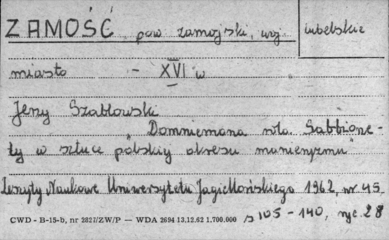 ZAMOŚĆ, pow zamojski, woj. lubelskie
miasto - XVI w
Jerzy Szabłowski
"Domniemana rola Sabbione-
ty w sztuce polskiej okresu manieryzmu"
Zeszyty Naukowe Uniwersytetu Jagiellońskiego 1962, nr 45.
CWD - B-15-b, nr 3821/ZW/P — WDA 2694 13.12.62 1.700.000
s 105 - 140, ryc. 28